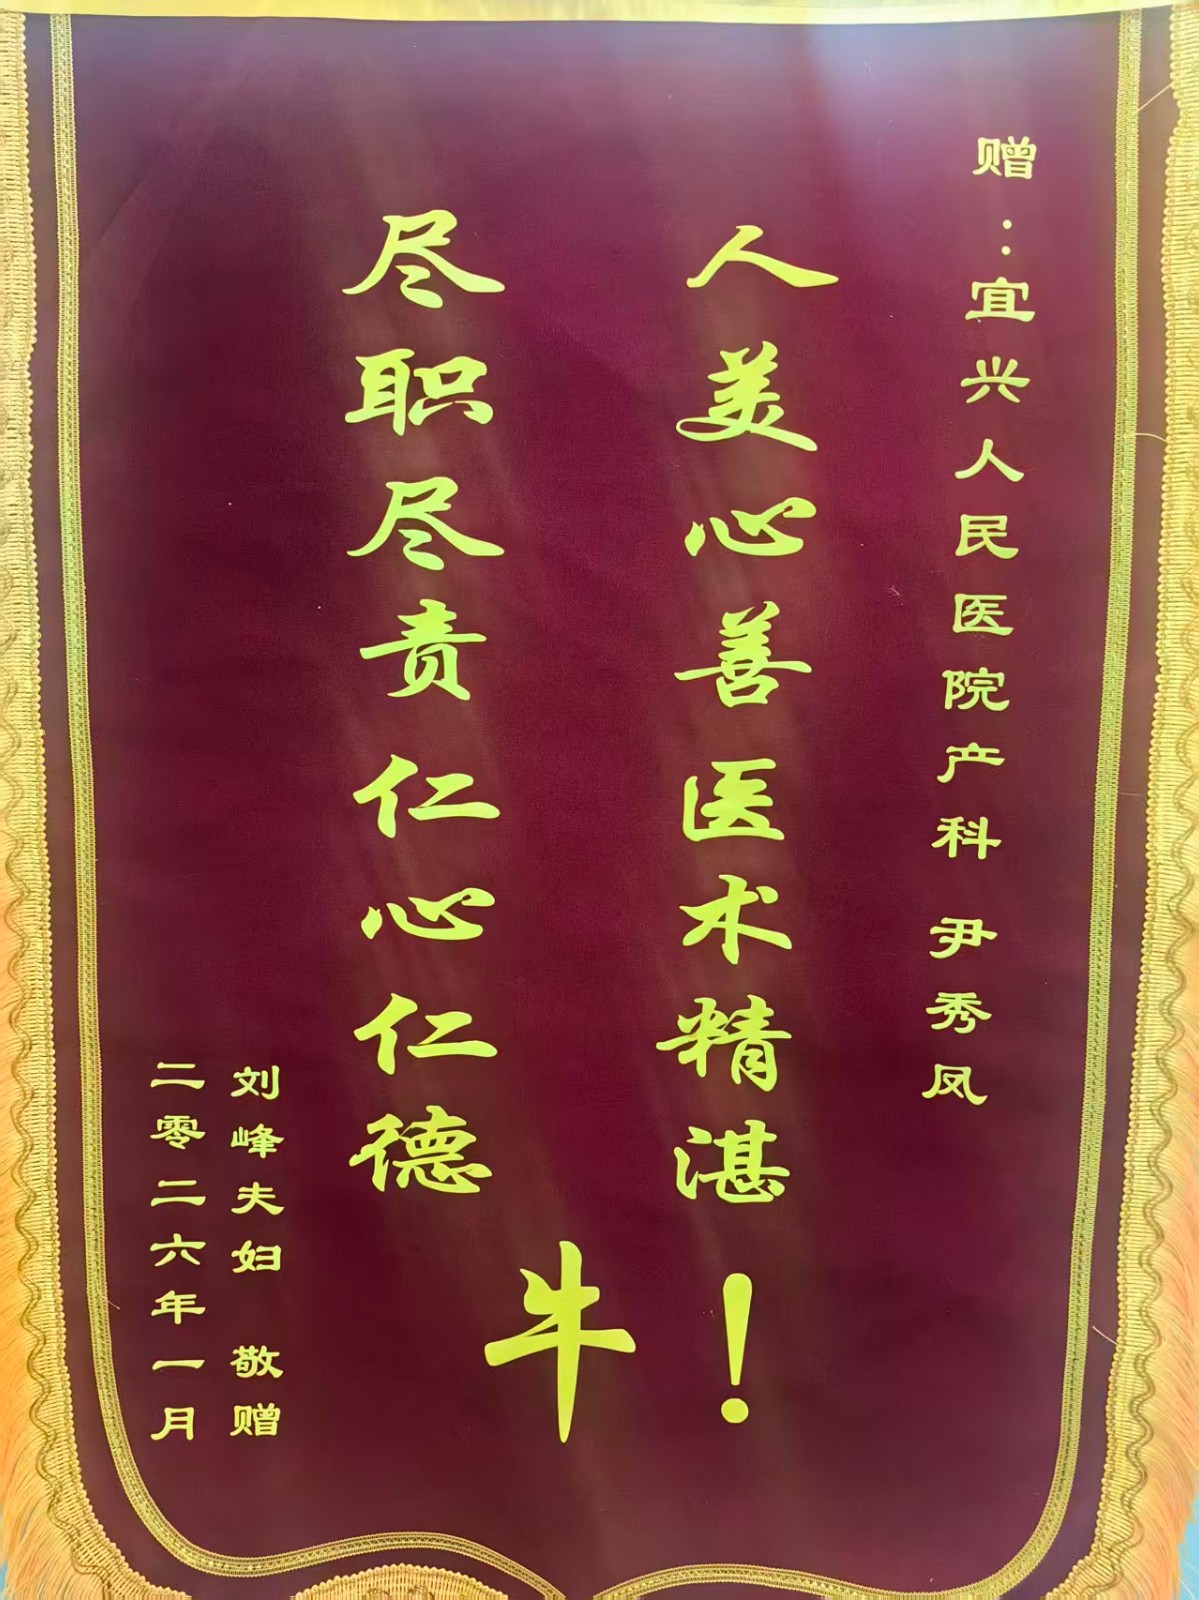 赠：宜兴人民医院产科 尹秀凤
人美心善医术精湛
尽职尽责仁心仁德
牛！
刘峰夫妇 敬赠
二零二六年一月